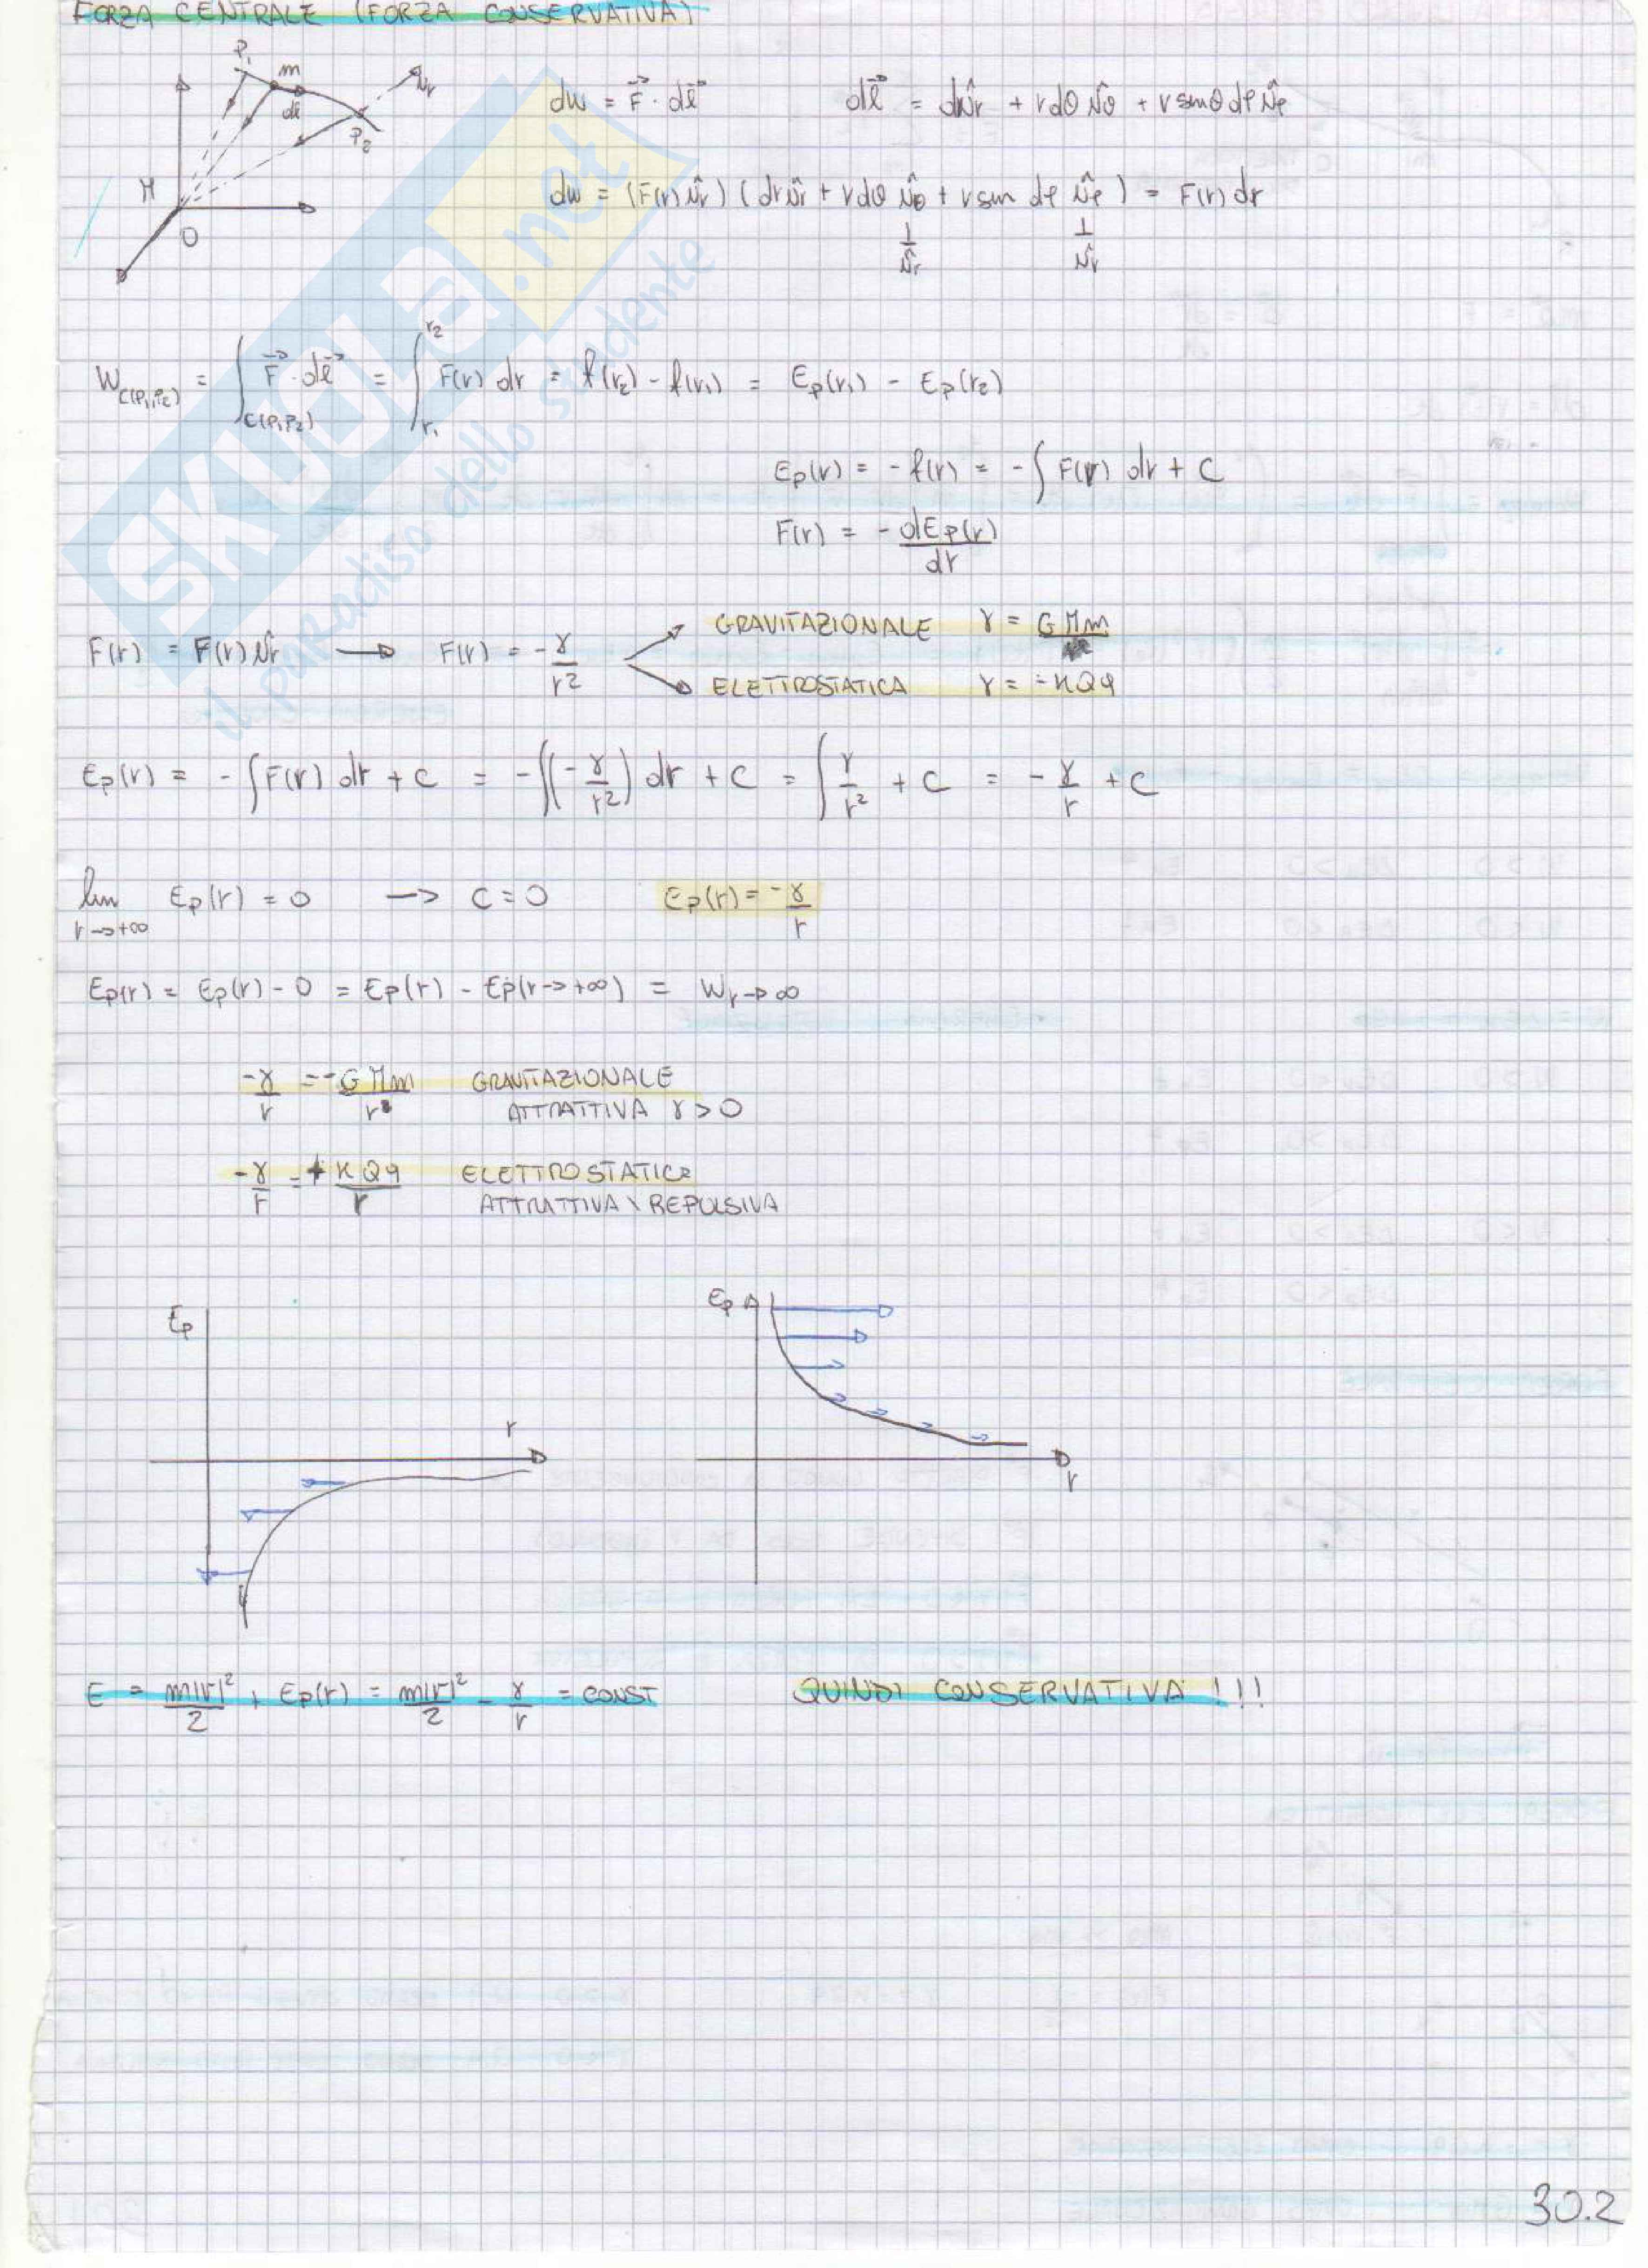 FORZA CENTRALE (FORZA CONSERVATIVA)
P₁ m dl P₂ ûr
M O
dw = F⃗ · dl⃗
dl⃗ = dûr + rdθ ûθ + r sinθ dφ ûφ
dw = (F(r) ûr) (dr ûr + rdθ ûθ + r sin dφ ûφ) = F(r) dr
⊥ ûr ⊥ ûr
W_C(P₁,P₂) = ∫_C(P₁P₂) F⃗ · dl⃗ = ∫_r₁^r₂ F(r) dr = f(r₂) - f(r₁) = Ep(r₁) - Ep(r₂)
Ep(r) = - f(r) = - ∫ F(r) dr + C
F(r) = - dEp(r)/dr
F(r) = F(r) ûr → F(r) = - γ/r²
GRAVITAZIONALE γ = GMm
ELETTROSTATICA γ = -KQq
Ep(r) = - ∫ F(r) dr + C = - ∫(- γ/r²) dr + C = ∫ γ/r² + C = - γ/r + C
lim r→+∞ Ep(r) = 0 → C = 0 Ep(r) = - γ/r
Ep(r) = Ep(r) - 0 = Ep(r) - Ep(r→+∞) = W r→∞
-γ/r = - GMm/r GRAVITAZIONALE
ATTRATTIVA γ > 0
-γ/r = + KQq/r ELETTROSTATICA
ATTRATTIVA \ REPULSIVA
Ep r
Ep r
E = m|v|²/2 + Ep(r) = m|v|²/2 - γ/r = CONST QUINDI CONSERVATIVA !!!
30.2
SKUOLA.net
il paradiso dello studente